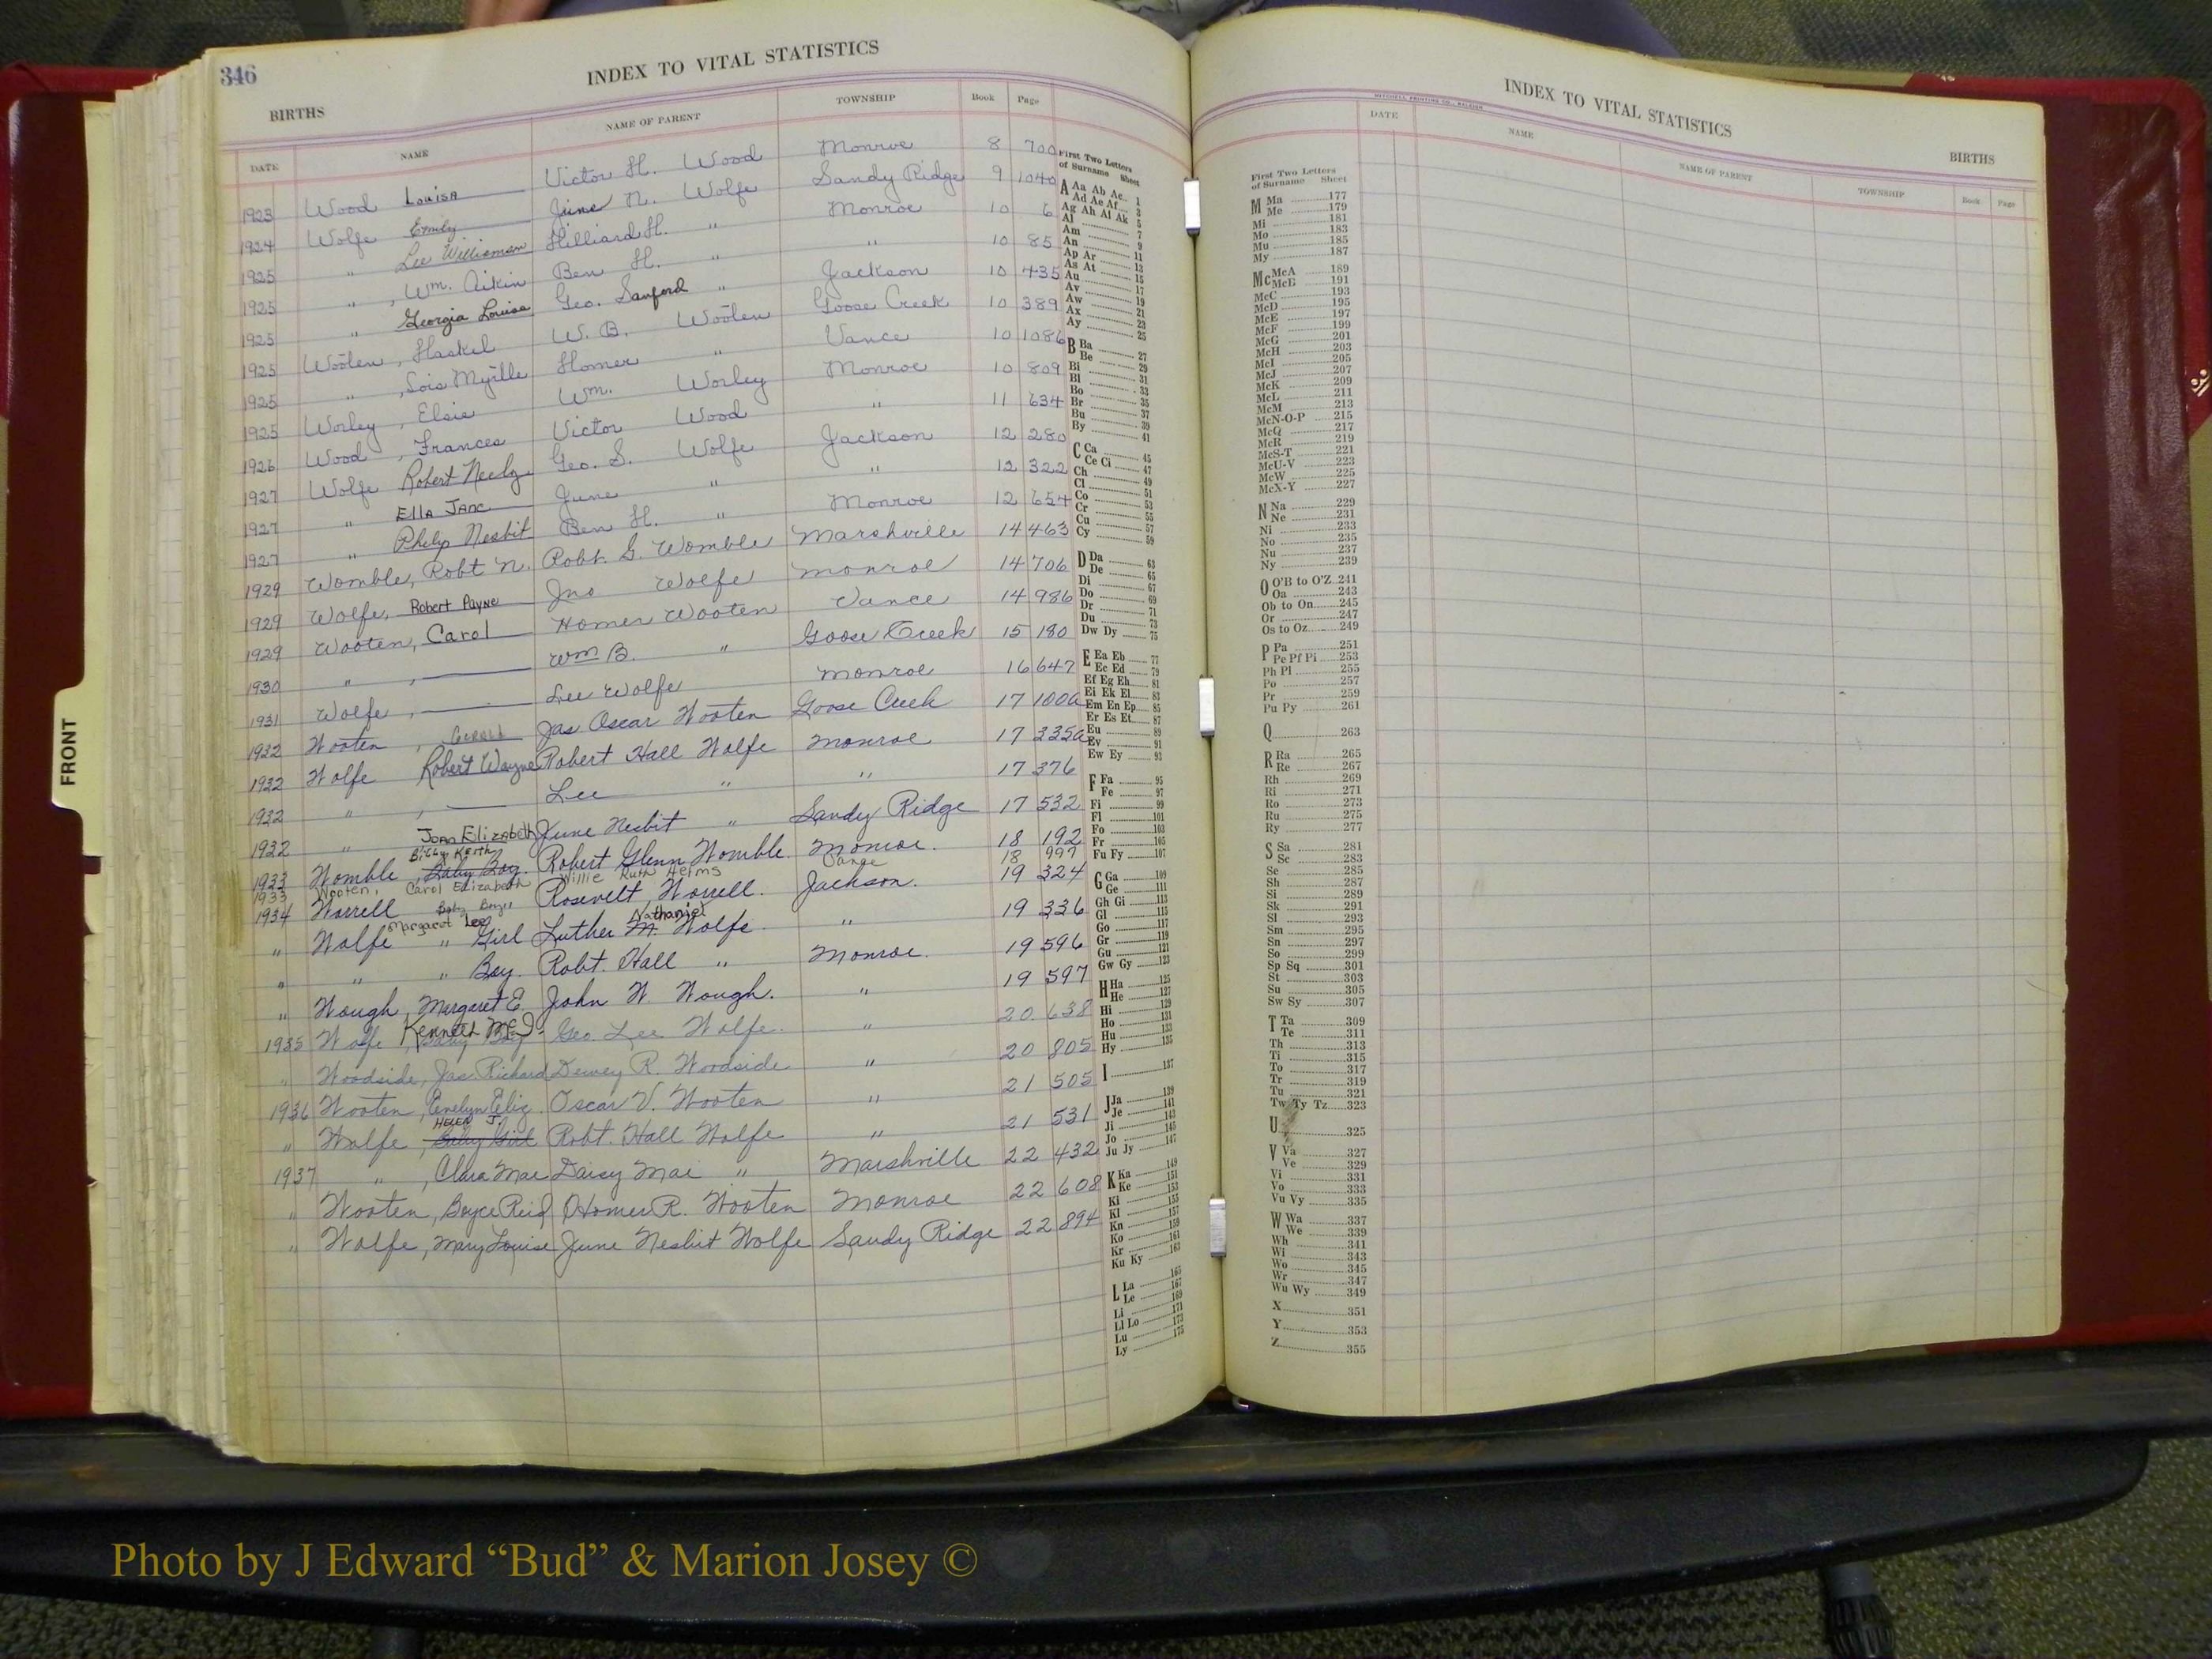 346
INDEX TO VITAL STATISTICS
BIRTHS
DATE NAME NAME OF PARENT TOWNSHIP Book Page
1923 Wood Louisa Victor H. Wood Monroe 8 700
1924 Wolfe Emily June N. Wolfe Sandy Ridge 9 1040
1925 " Lee Williamson Hilliard H. " Monroe 10 6
1925 " , Wm. Aikin Ben H. " " 10 85
1925 " Georgia Louise Geo. Sanford " Jackson 10 435
1925 Wooten, Haskel W. B. Wooten Goose Creek 10 389
1925 " , Lois Myrtle Homer " Vance 10 1086
1925 Worley, Elsie Wm. Worley Monroe 10 809
1926 Wood, Frances Victor Wood " 11 634
1927 Wolfe Robert Neely Geo. S. Wolfe Jackson 12 280
1927 " Ella Jane June " " 12 322
1927 " Philip Nesbit Ben H. " Monroe 12 654
1929 Womble, Robt N. Robt. G. Womble Marshville 14 463
1929 Wolfe, Robert Payne Jno Wolfe Monroe 14 706
1929 Wooten, Carol Homer Wooten Vance 14 986
1930 " , Wm B. " Goose Creek 15 180
1931 Wolfe, Lee Wolfe Monroe 16 647
1932 Wooten, Jas Oscar Wooten Goose Creek 17 100a
1932 Wolfe Robert Wayne Robert Hall Wolfe Monroe 17 335a
1932 " , Lee " " 17 376
1932 " Joan Elizabeth June Nesbit " Sandy Ridge 17 532
Billy Keith
1933 Womble, Baby Boy. Robert Glenn Womble. Monroe. 18 192
1933 Wooten, Carol Elizabeth Willie Ruth Helms Vance 18 997
1934 Worrell Baby Boy Rosevelt Worrell. Jackson. 19 324
Margaret Lee Nathaniel
" Wolfe " Girl Luther M. Wolfe. " 19 336
" " " Boy. Robt. Hall " Monroe. 19 596
" Wough, Margaret E. John W Wough. " 19 597
Kenneth McJ.
1935 Wolfe, Baby Boy Geo Lee Wolfe. " 20 638
" Woodside, Jas Richard Dewey R. Woodside " 20 805
1936 Wooten, Evelyn Eliz. Oscar V. Wooten " 21 505
HELEN J.
" Wolfe, Baby Girl Robt. Hall Wolfe " 21 531
1937 " , Clara Mae Daisy Mae " Marshville 22 432
" Wooten, Boyce Reid Homer R. Wooten Monroe 22 608
" Wolfe, Mary Louise June Nesbit Wolfe Sandy Ridge 22 894
First Two Letters
of Surname Sheet
A Aa Ab Ac 1
Ad Ae Af 3
Ag Ah Ai Ak 5
Al 7
Am 9
An 11
Ap Ar 13
As At 15
Au 17
Av 19
Aw 21
Ax 23
Ay 25
B Ba 27
Be 29
Bi 31
Bl 33
Bo 35
Br 37
Bu 39
By 41
C Ca 45
Ce Ci 47
Ch 49
Cl 51
Co 53
Cr 55
Cu 57
Cy 59
D Da 63
De 65
Di 67
Do 69
Dr 71
Du 73
Dw Dy 75
E Ea Eb 77
Ec Ed 79
Ef Eg Eh 81
Ei Ek El 83
Em En Ep 85
Er Es Et 87
Eu 89
Ev 91
Ew Ey 93
F Fa 95
Fe 97
Fi 99
Fl 101
Fo 103
Fr 105
Fu Fy 107
G Ga 109
Ge 111
Gh Gi 113
Gl 115
Go 117
Gr 119
Gu 121
Gw Gy 123
H Ha 125
He 127
Hi 129
Ho 131
Hu 133
Hy 135
I 137
J Ja 139
Je 141
Ji 143
Jo 145
Ju Jy 147
K Ka 149
Ke 151
Ki 153
Kl 155
Kn 157
Ko 159
Kr 161
Ku Ky 163
L La 165
Le 167
Li 169
Ll Lo 171
Lu 173
Ly 175
FRONT
INDEX TO VITAL STATISTICS
MITCHELL PRINTING CO., RALEIGH
BIRTHS
DATE NAME NAME OF PARENT TOWNSHIP Book Page
First Two Letters
of Surname Sheet
M Ma 177
Me 179
Mi 181
Mo 183
Mu 185
My 187
Mc McA 189
McB 191
McC 193
McD 195
McE 197
McF 199
McG 201
McH 203
McI 205
McJ 207
McK 209
McL 211
McM 213
McN-O-P 215
McQ 217
McR 219
McS-T 221
McU-V 223
McW 225
McX-Y 227
N Na 229
Ne 231
Ni 233
No 235
Nu 237
Ny 239
O O'B to O'Z 241
Oa 243
Ob to On 245
Or 247
Os to Oz 249
P Pa 251
Pe Pf Pi 253
Ph Pl 255
Po 257
Pr 259
Pu Py 261
Q 263
R Ra 265
Re 267
Rh 269
Ri 271
Ro 273
Ru 275
Ry 277
S Sa 281
Sc 283
Se 285
Sh 287
Si 289
Sk 291
Sl 293
Sm 295
Sn 297
So 299
Sp Sq 301
St 303
Su 305
Sw Sy 307
T Ta 309
Te 311
Th 313
Ti 315
To 317
Tr 319
Tu 321
Tw Ty Tz 323
U 325
V Va 327
Ve 329
Vi 331
Vo 333
Vu Vy 335
W Wa 337
We 339
Wh 341
Wi 343
Wo 345
Wr 347
Wu Wy 349
X 351
Y 353
Z 355
Photo by J Edward “Bud” & Marion Josey ©